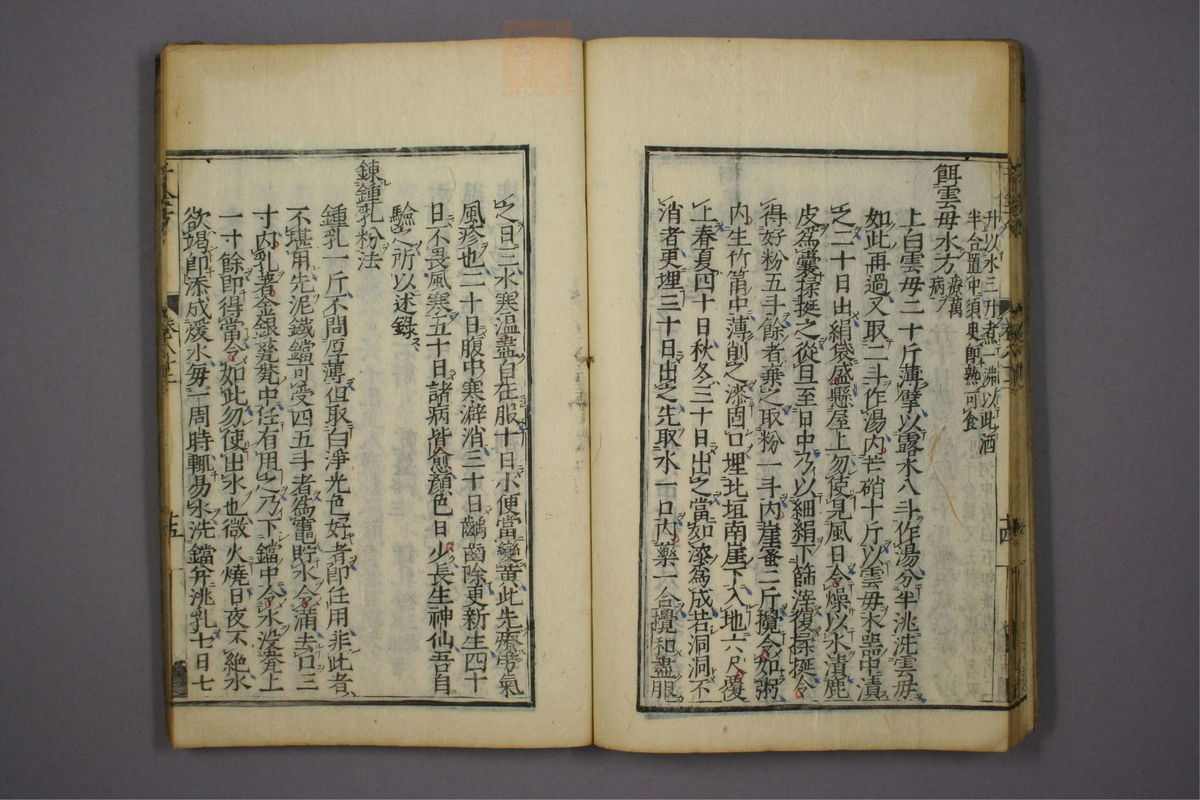 升以水三升煮一沸以此酒
半合置中須臾即熟可食
餌雲母水方 療萬病
上白雲母二十斤薄擘以露水八斗作湯分半洮洗雲母
如此再過又取二斗作湯内芒硝十斤以雲母木器中漬
之二十日出絹袋盛懸屋上勿使見風日令燥以水漬鹿
皮爲囊揉挻之從旦至日中乃以細絹下篩滓復揉挻令
得好粉五斗餘者棄之取粉一斗内崖蜜二斤攪令如粥
内生竹筩中薄削之漆固口埋北垣南崖下入地六尺覆
上春夏四十日秋冬三十日出之當如漆爲成若洞洞不
消者更埋三十日出之先取水一口内藥一合攪和盡服
之日三水寒温盡自在服十日小便當變黄此先療勞氣
風疹也二十日腹中寒澼消三十日齲齒除更新生四十
日不畏風寒五十日諸病皆愈顔色日少長生神仙吾自
驗之所以述錄
鍊鍾乳粉法
鍾乳一斤不問厚薄但取白淨光色好者即任用非此者
不堪用先泥鐵鐺可受四五斗者爲竈貯水令滿去口三
寸内乳著金銀瓷甆中任有用之乃下鐺中令水没甆上
一寸餘即得當令如此勿使出水也微火燒日夜不絶水
欲竭即添成煖水每一周時輒易水洗鐺并洮乳七日七
十四
十五